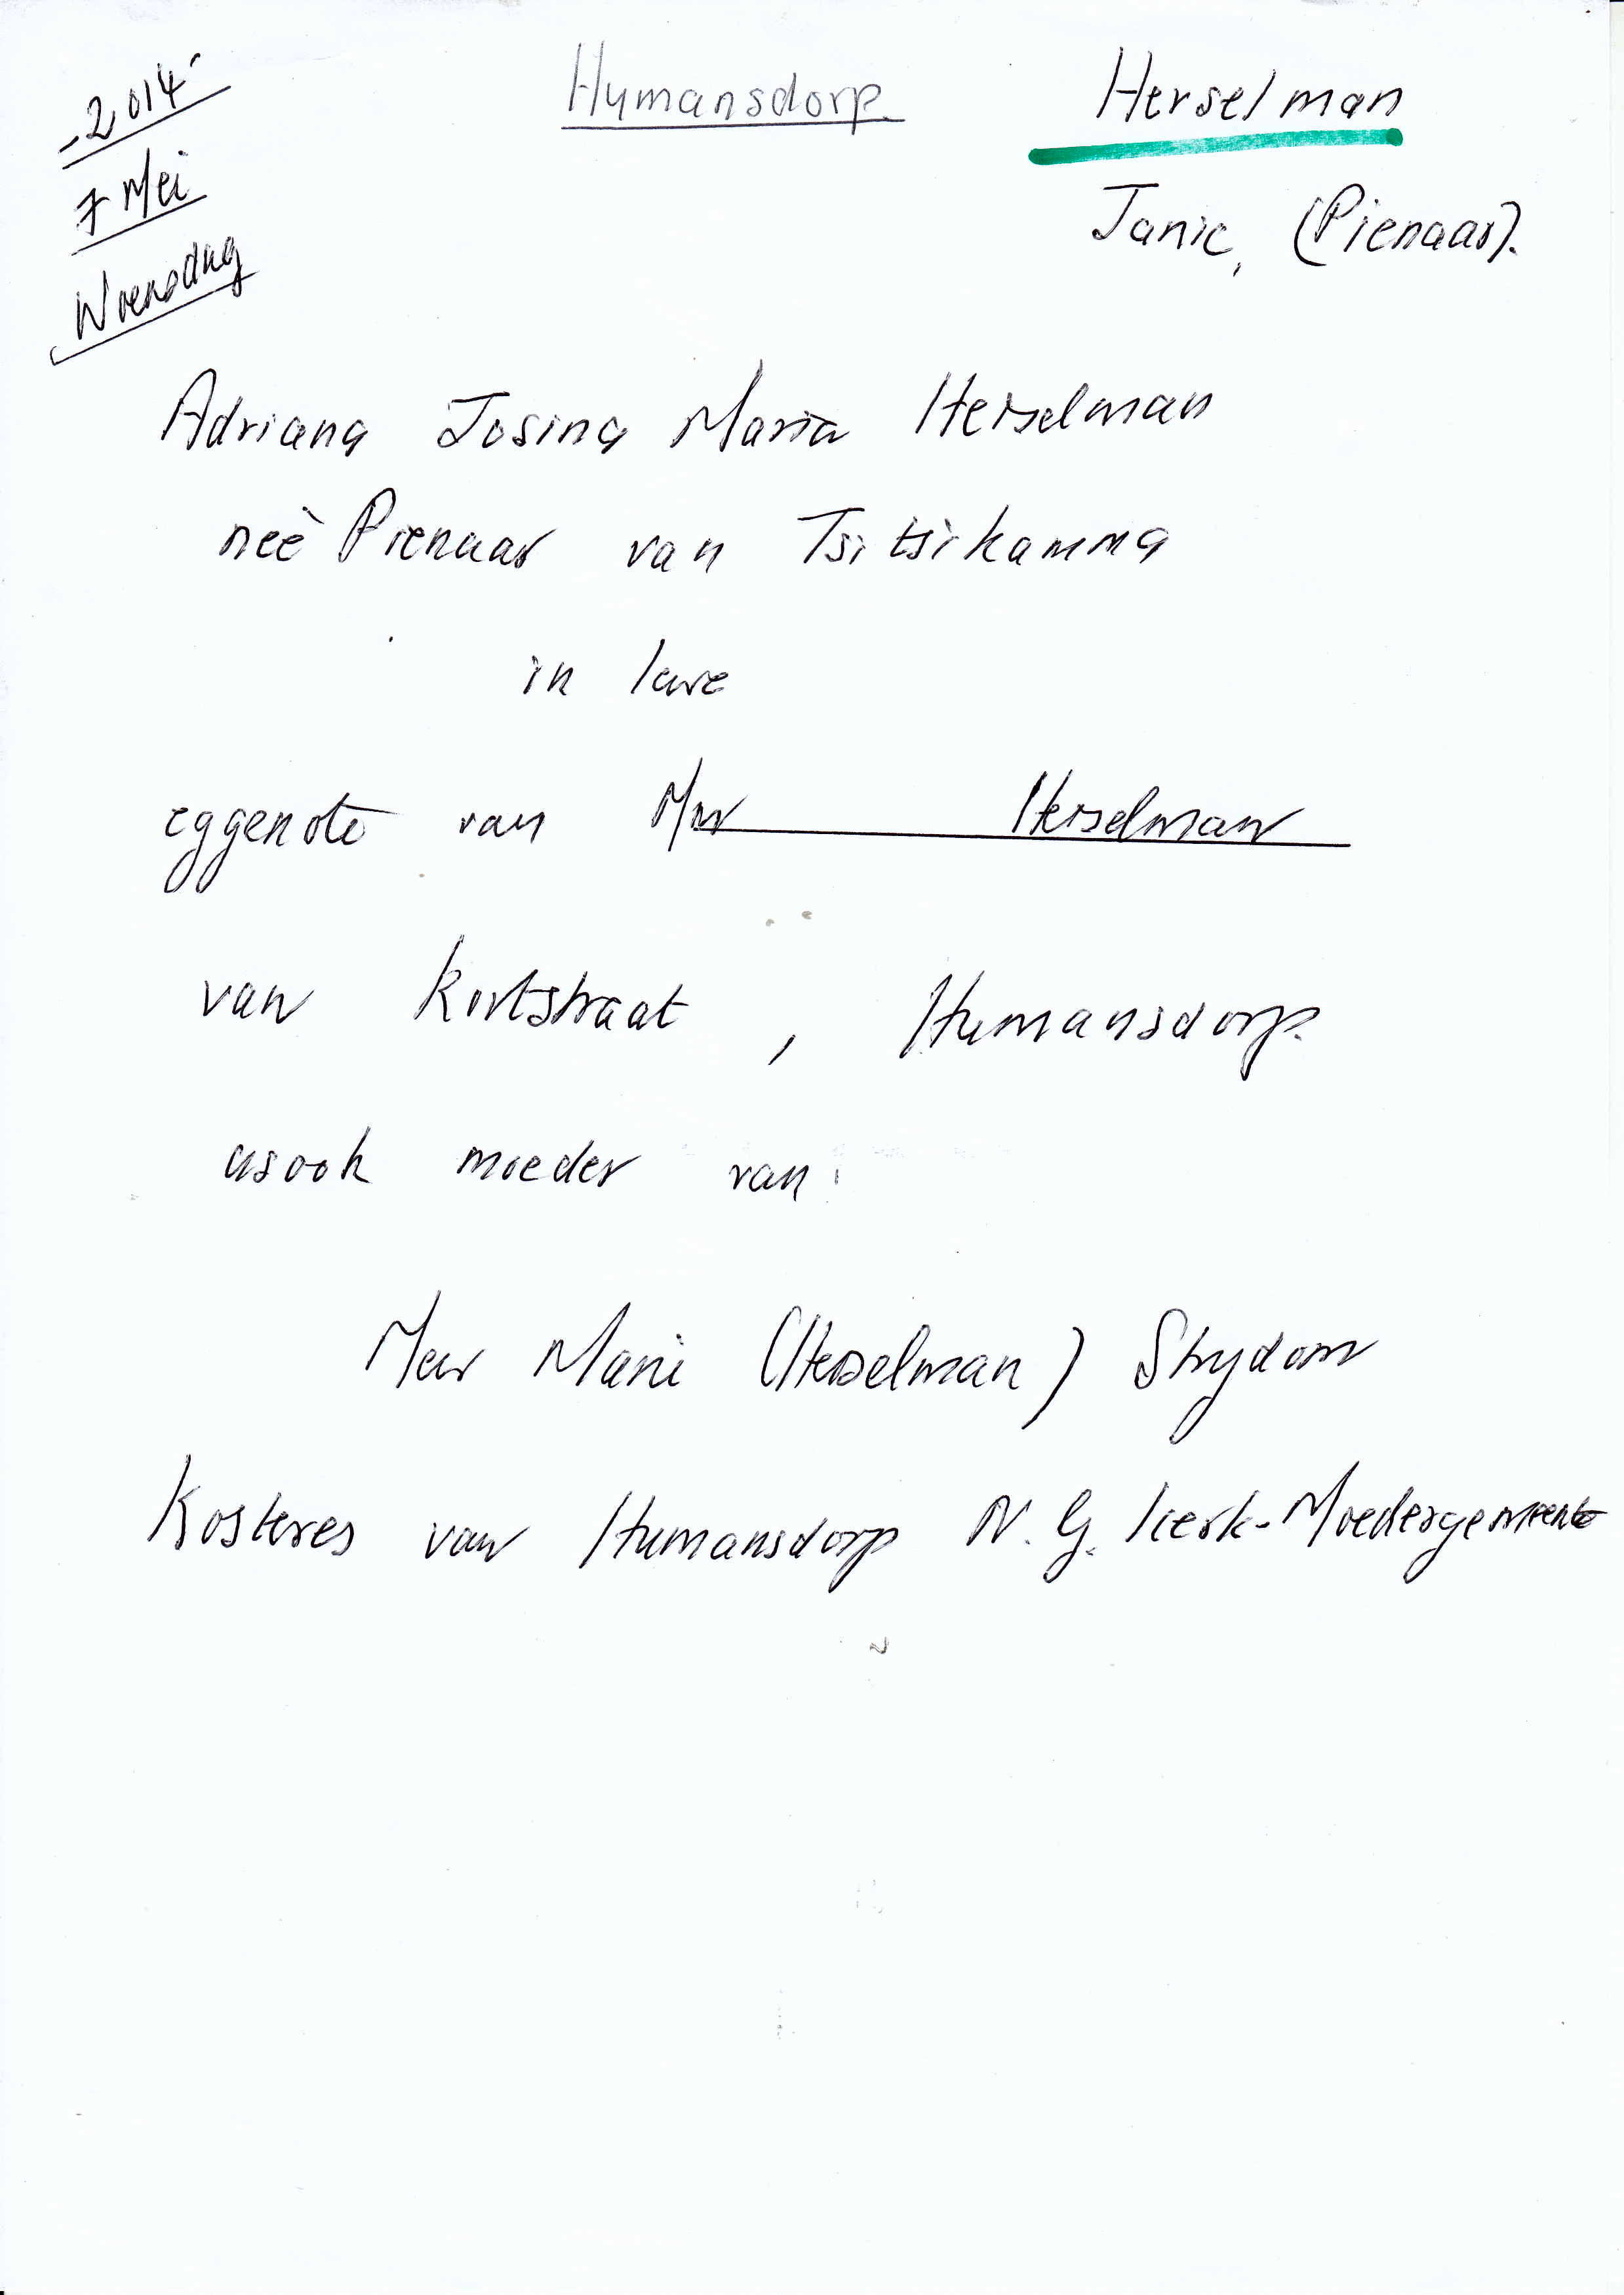 2014
7 Mei
Woensdag
Humansdorp.
Herselman
Janie, (Pienaar).
Adriana Josina Maria Herselman
neè Pienaar van Tsitsikamma
in lewe
eggenote van Mnr Herselman
van Kortstraat, Humansdorp.
asook moeder van:
Mev Marie (Herselman) Strydom
Kosteres van Humansdorp N.G. Kerk-Moedergemeente